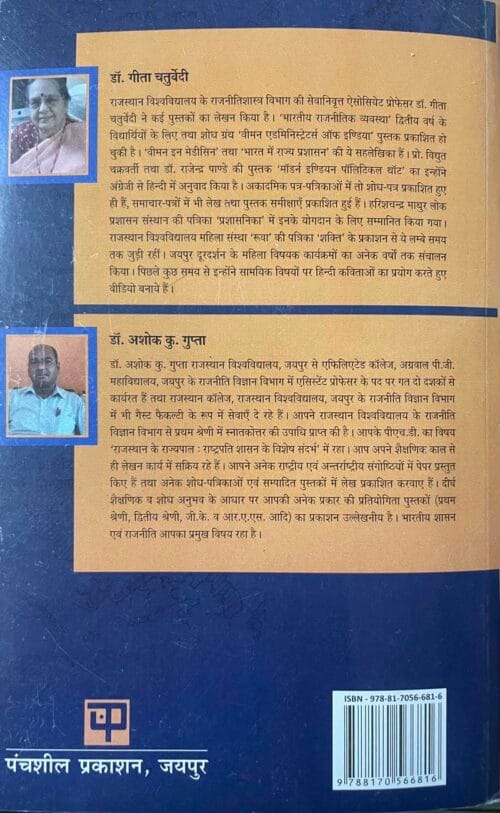 डॉ. गीता चतुर्वेदी
राजस्थान विश्वविद्यालय के राजनीतिशास्त्र विभाग की सेवानिवृत्त ऐसोसियेट प्रोफेसर डॉ. गीता
चतुर्वेदी ने कई पुस्तकों का लेखन किया है। 'भारतीय राजनीतिक व्यवस्था' द्वितीय वर्ष के
विद्यार्थियों के लिए तथा शोध ग्रंथ 'वीमन एडमिनिस्ट्रेटर्स ऑफ इण्डिया' पुस्तक प्रकाशित हो
चुकी है। 'वीमन इन मेडीसिन' तथा 'भारत में राज्य प्रशासन' की ये सहलेखिका हैं। प्रो. विद्युत
चक्रवर्ती तथा डॉ. राजेन्द्र पाण्डे की पुस्तक 'मॉडर्न इण्डियन पॉलिटिकल थॉट' का इन्होंने
अंग्रेजी से हिन्दी में अनुवाद किया है। अकादमिक पत्र-पत्रिकाओं में तो शोध-पत्र प्रकाशित हुए
ही हैं, समाचार-पत्रों में भी लेख तथा पुस्तक समीक्षाएँ प्रकाशित हुई हैं। हरिशचन्द्र माथुर लोक
प्रशासन संस्थान की पत्रिका 'प्रशासनिका' में इनके योगदान के लिए सम्मानित किया गया।
राजस्थान विश्वविद्यालय महिला संस्था 'रूवा' की पत्रिका 'शक्ति' के प्रकाशन से ये लम्बे समय
तक जुड़ी रहीं। जयपुर दूरदर्शन के महिला विषयक कार्यक्रमों का अनेक वर्षों तक संचालन
किया। पिछले कुछ समय से इन्होंने सामयिक विषयों पर हिन्दी कविताओं का प्रयोग करते हुए
वीडियो बनाये हैं।
डॉ. अशोक कु. गुप्ता
डॉ. अशोक कु. गुप्ता राजस्थान विश्वविद्यालय, जयपुर से एफिलिएटेड कॉलेज, अग्रवाल पी.जी.
महाविद्यालय, जयपुर के राजनीति विज्ञान विभाग में एसिस्टेंट प्रोफेसर के पद पर गत दो दशकों से
कार्यरत हैं तथा राजस्थान कॉलेज, राजस्थान विश्वविद्यालय, जयपुर के राजनीति विज्ञान विभाग
में भी गैस्ट फैकल्टी के रूप में सेवाएँ दे रहे हैं। आपने राजस्थान विश्वविद्यालय के राजनीति
विज्ञान विभाग से प्रथम श्रेणी में स्नातकोत्तर की उपाधि प्राप्त की है। आपके पीएच.डी. का विषय
'राजस्थान के राज्यपाल : राष्ट्रपति शासन के विशेष संदर्भ' में रहा। आप अपने शैक्षणिक काल से
ही लेखन कार्य में सक्रिय रहे हैं। आपने अनेक राष्ट्रीय एवं अन्तर्राष्ट्रीय संगोष्ठियों में पेपर प्रस्तुत
किए हैं तथा अनेक शोध-पत्रिकाओं एवं सम्पादित पुस्तकों में लेख प्रकाशित करवाए हैं। दीर्घ
शैक्षणिक व शोध अनुभव के आधार पर आपकी अनेक प्रकार की प्रतियोगिता पुस्तकों (प्रथम
श्रेणी, द्वितीय श्रेणी, जी.के. व आर.ए.एस. आदि) का प्रकाशन उल्लेखनीय है। भारतीय शासन
एवं राजनीति आपका प्रमुख विषय रहा है।
ISBN - 978-81-7056-681-6
9 788170 566816
पंचशील प्रकाशन, जयपुर